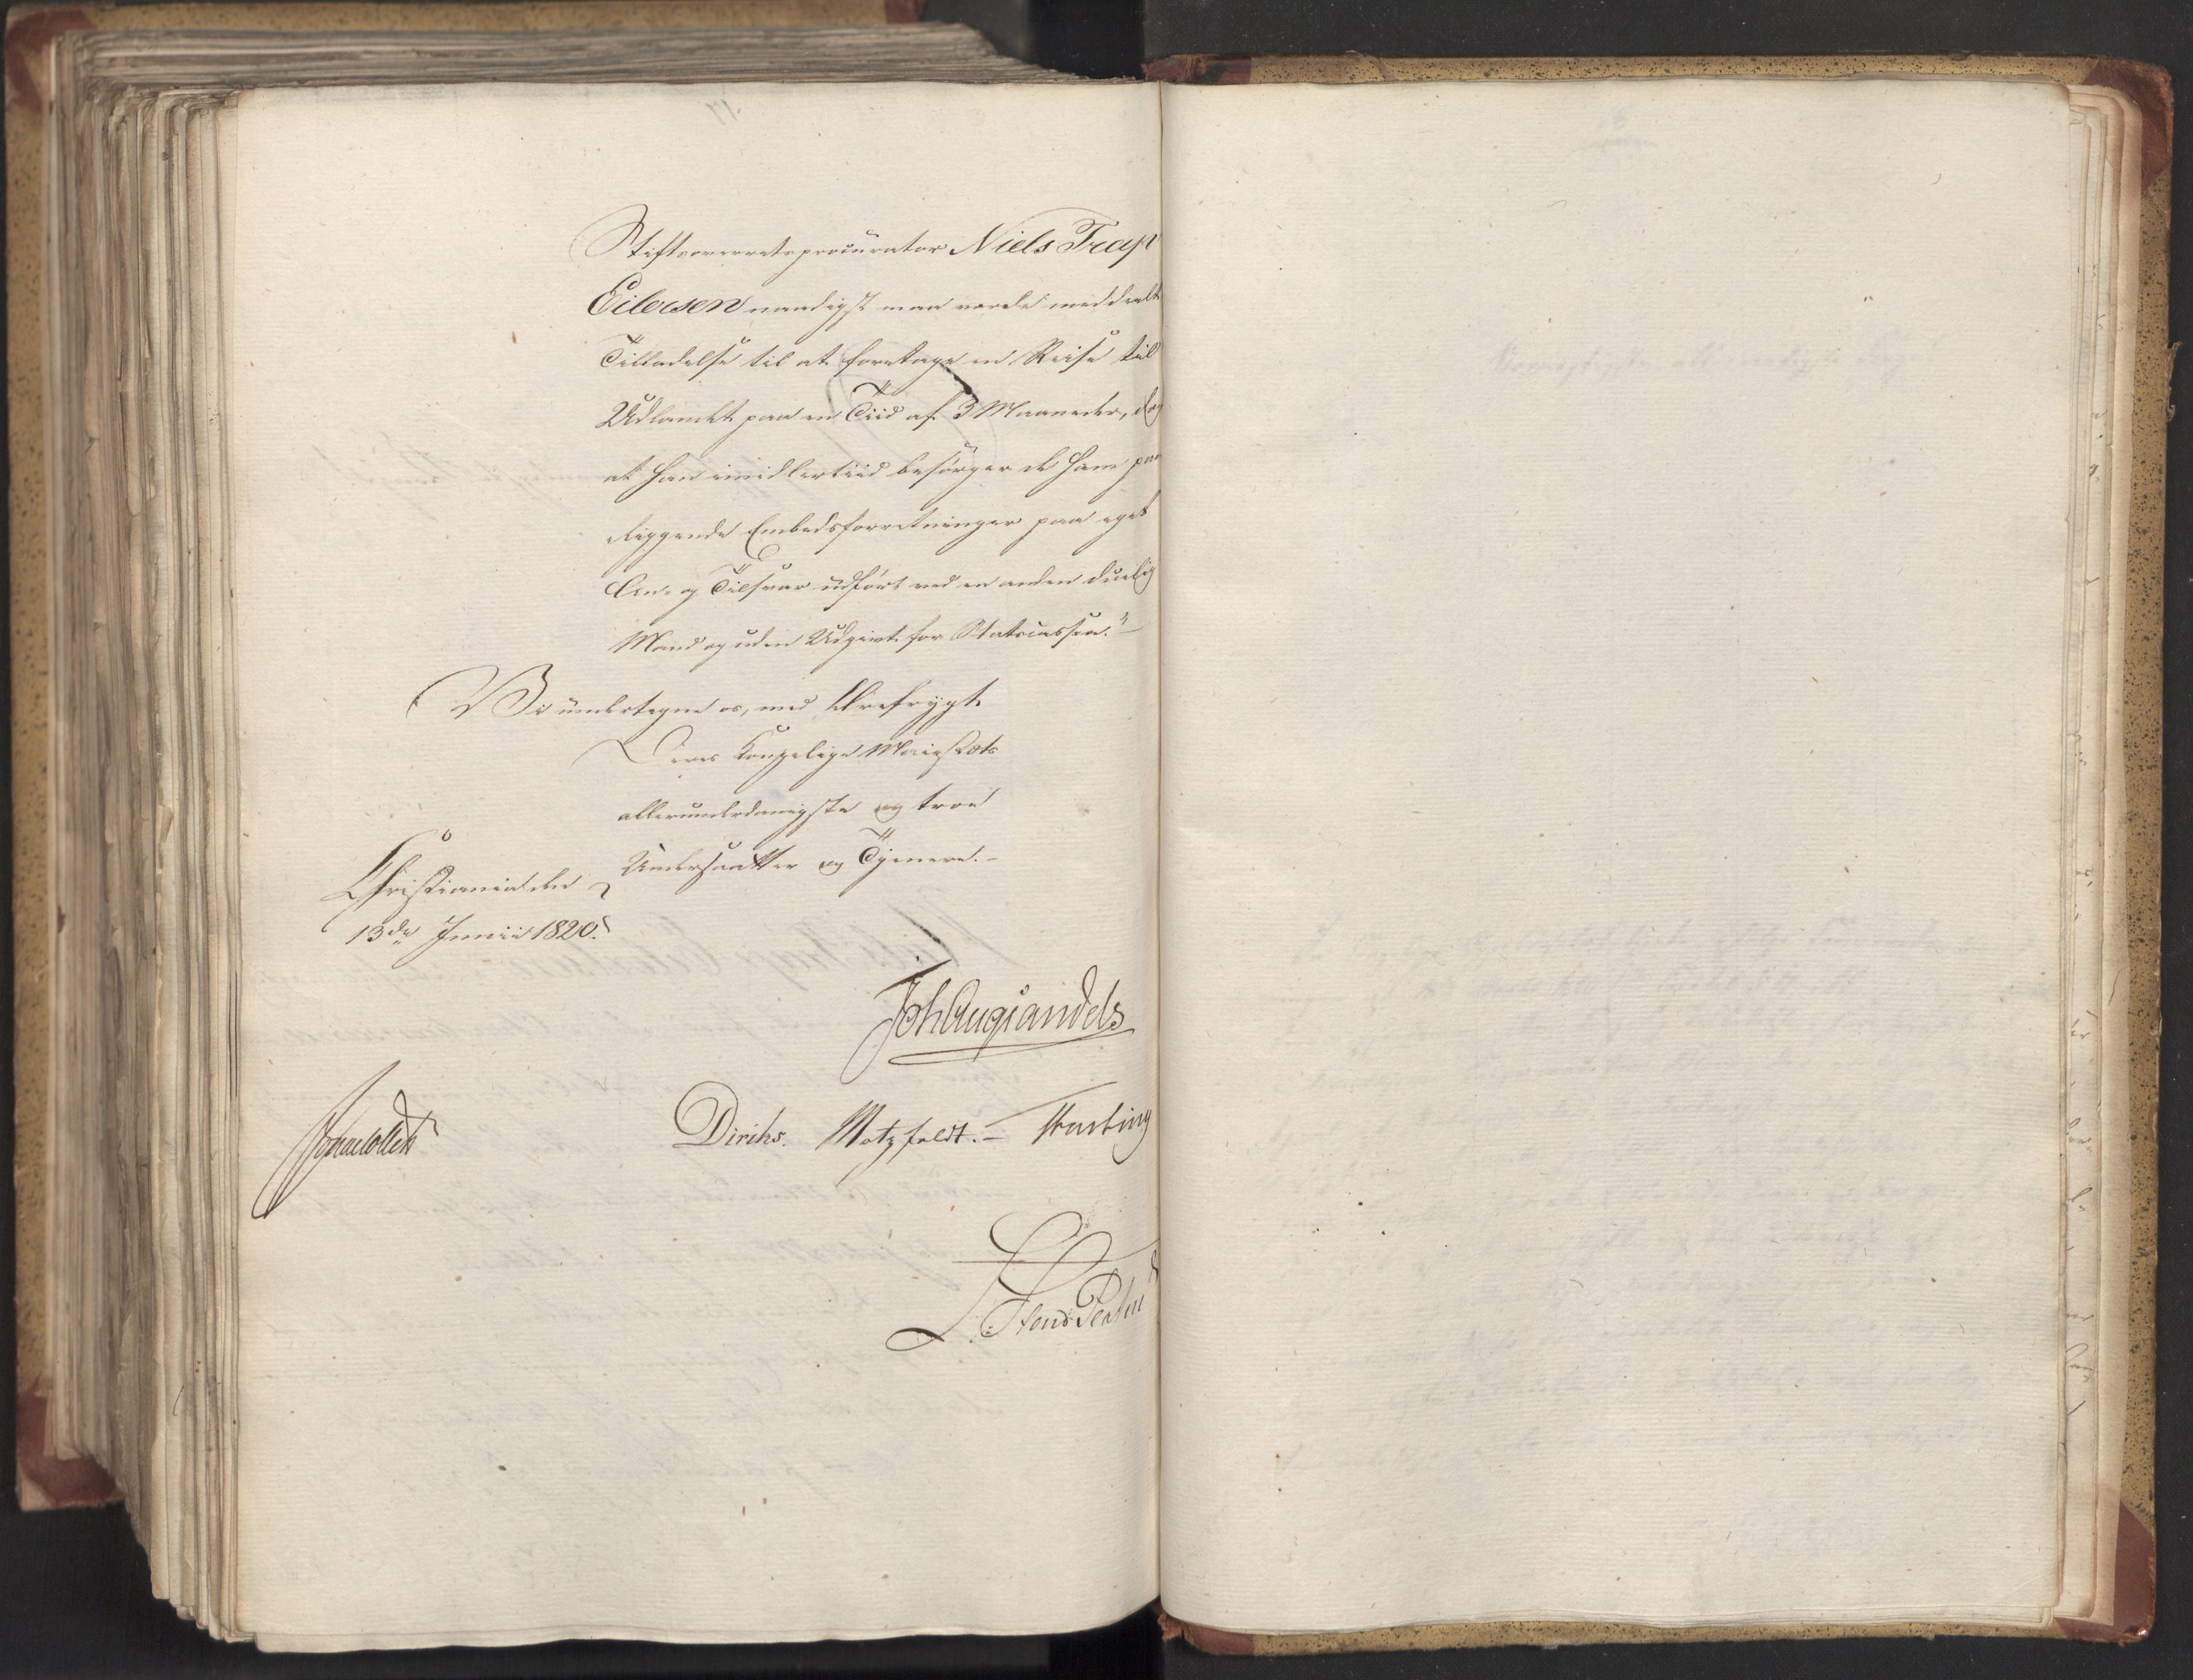 Stiftsoverretsprocurator Niels Trap
Eilersen naadigst maa vorde meddeelt
Tilladelse til at foretage en Reise til
Udlandet paa en Tiid af 3 Maaneder, dog
at han imidlertiid besørger de ham paa
liggende Embedsforretninger paa eget
An- og Tilsvar udført ved en anden duelig
Mand og uden Udgivt for Statscassen."
Vi undertegne os, med Ærefrygt
Deres Kongelige Majestæts
allerunderdanigste og troe
Undersaatter og Tjenere.
Christiania den
13de Junii 1820.
Joh Aug Sandels
Diriks. Motzfeldt. Fasting
Jonas Collett